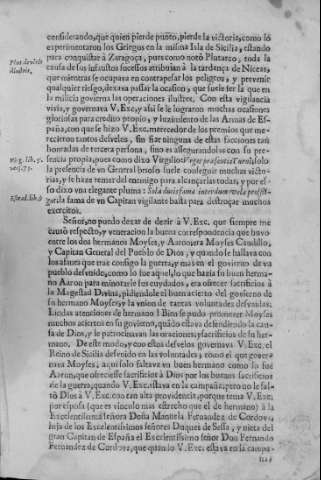 considerando, que quien pierde punto, pierde la victoria, como lo
experimentaron los Griegos en la misma Isla de Sicilia, estando
para conquistar à Zaragoça, pues como notò Plutarco, toda la
causa de sus infaustos sucessos atribuian à la tardança de Niceas,
que mientras se ocupava en contrapesar los peligros, y prevenir
qualquier riesgo, dexava passar la ocasion, que suele ser la que en
la milicia govierna las operaciones ilustres. Con esta vigilancia
vivia, y governava V. Exc. y assi se le lograron muchas ocasiones
gloriosas para credito propio, y luzimiento de las Armas de Es-
paña, con que se hizo V. Exc. merecedor de los premios que me-
recieron tantos desvelos, sin fiar ninguna de estas facciones tan
honradas de tercera persona, sino es assegurandolas con su pre-
sencia propia, pues como dixo Virgilio: Urget præsentia Turni, solo
la presencia de un General brioso suele conseguir muchas victo-
rias, y se haze temer del enemigo para alcançarlas todas, y por es-
so dixo una elegante pluma: Sola ducis fama interdum bella profli-
gat, la fama de un Capitan vigilante basta para destroçar muchos
exercitos.
Señor, no puedo dexar de dezir à V. Exc. que siempre me
causò respecto, y veneracion la buena correspondencia que huvo
entre los dos hermanos Moyses, y Aaron; era Moyses Caudillo,
y Capitan General del Pueblo de Dios, y quando se hallava con
los afanes que trae consigo la guerra, y mas en el govierno de un
pueblo desunido, como lo fue aquel, lo que hazia su buen herma-
no Aaron para minorarle sus cuydados, era ofrecer sacrificios à
la Magestad Divina, pidiendole el buen acierto del govierno de
su hermano Moyses, y la union de tantas voluntades desvnidas.
Lindas atenciones de hermano! Bien se pudo prometer Moyses
muchos aciertos en su govierno, quãdo estava defendiendo la cau-
sa de Dios, y le patrocinavan las oraciones, y sacrificios de su her-
mano. De este modo, y con estos desvelos governava V. Exc. el
Reyno de Sicilia desunido en las voluntades, como el que gover-
nava Moyses, aqui solo faltava un buen hermano como lo fue
Aaron, que ofreciesse sacrificios à Dios por los buenos sucessos
de la guerra, quando V. Exc. estava en la campaña; pero no le fal-
tò Dios à V. Exc. con tan alta providencia, porque tenia V. Exc.
por esposa (que es vinculo mas estrecho que el de hermano) à la
Excelentissima señora Doña Mantela Fernandez de Cordova,
hija de los Excelentissimos señores Duques de Sessa, y nieta del
gran Capitan de España el Excelentissimo señor Don Fernando
Fernandez de Cordova, que quando V. Exc. estava en la campa-